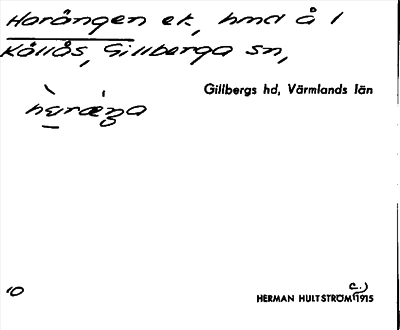 Harängen ek, hmd å 1
Källås, Gillberga sn,
Gillbergs hd, Värmlands län
10
c.)
HERMAN HULTSTRÖM 1915